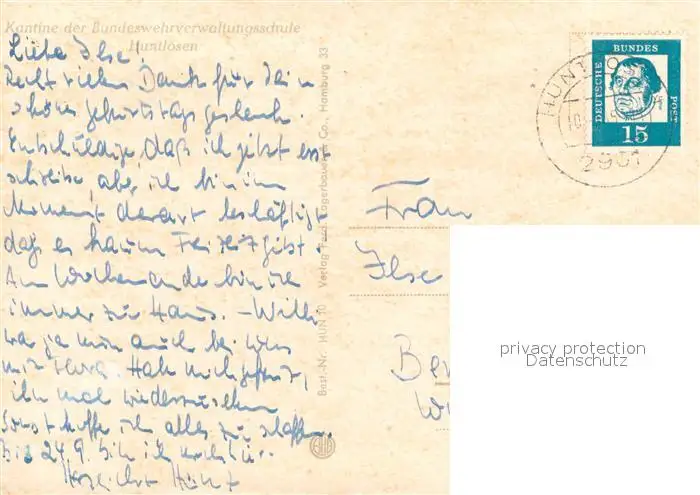 Kantine der Bundeswehrverwaltungsschule
Huntlosen
Liebe Ilse!
Recht vielen Dank für Dein
schönes Geburtstagsgeschenk.
Entschuldige, daß ich jetzt erst
schreibe aber ich bin im
Moment derart beschäftigt
daß es kaum Freizeit gibt.
Am Wochenende bin ich
immer zu Haus. - Willi
war ja nun auch bei uns
mit Hab mich gefreut,
ihn mal wiederzusehen
Sonst hoffe ich alles zu schaffen.
Bis 24.9. bin ich noch hier.
Herzlichst
Best.-Nr. HUN 10 Verlag Ferd. Lagerbauer & Co., Hamburg 33
DEUTSCHE
BUNDES
POST
15
HUNTLO
2901
Frau
Ilse
Be
privacy protection
Datenschutz